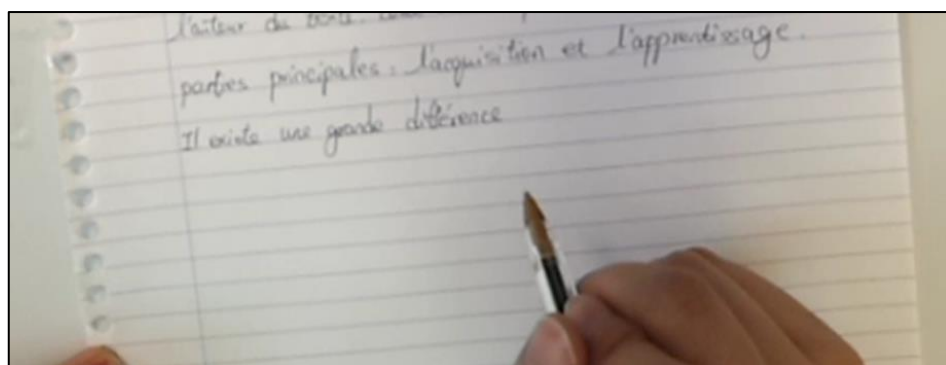 l'auteur du
parties principales : l'acquisition et l'apprentissage.
Il existe une grande différence